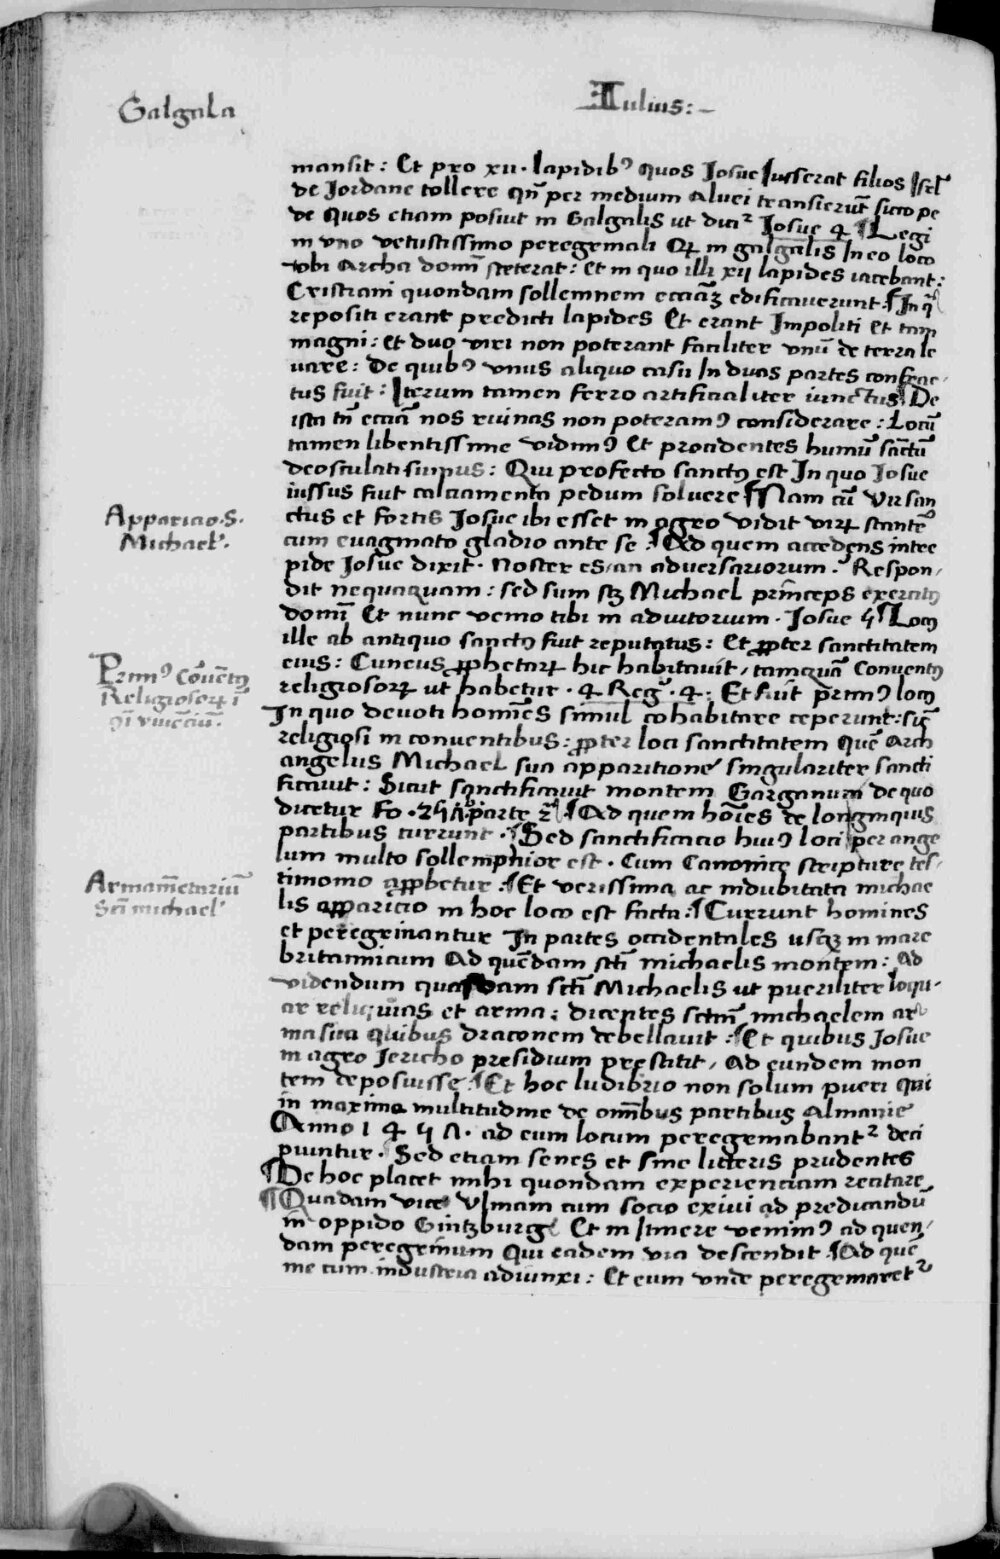 Galgala
Iulius:~
mansit: Et pro xii. lapidibꝰ quos Josue Jusserat filios Isrl̄
de Jordane tollere qn̄ per medium alvei transierūt sicco pe
de quos etiam posuit in Galgalis ut dici² Josue 4 ¶ Legi
in uno vetustissimo peregrinali ꝙ in galgalis In eo loco
ubi Archa domī steterat: Et in quo illi xii lapides iacebant:
Cristiani quondam sollemnem ecciāꝫ edificaverunt. ¶ In q̄
repositi erant predicti lapides Et erant Impoliti et tam
magni: et duo viri non poterant faciliter unū de terra le
vare: De quibꝰ unus aliquo casu In duas partes confrac-
tus fuit: Iterum tamen ferro artificialiter vinctus ¶ De
ista tn̄ ecciā nos ruinas non poteramꝰ considerare: Locū
tamen libentissime vidimꝰ Et procidentes humū sāctū
deosculati sumus: Qui profecto sanctꝰ est In quo Josue
iussus fuit calciamenta pedum solvere ¶ Nam cū vir san
ctus et fortis Josue ibi esset in agro vidit virꝝ stantē
cum evaginato gladio ante se. ¶ Ad quem accedens intre
pide Josue dixit. Noster es/an adversariorum. Respon/
dit nequaquam: sed sum stꝫ Michael prīnceps exercitꝰ
domī Et nunc venio tibi in adiutorium. Josue 5 ¶ Locꝰ
ille ab antiquo sanctꝰ fuit reputatus: Et ꝓpter sanctitatem
eius: Cuneus ꝓphetarꝝ hic habitavit, tamquā Conventꝰ
religiosorꝝ ut habetur. 4 Regꝰ. 4: Et fuit primꝰ locꝰ
In quo devoti homīes simul cohabitare ceperunt: sic̄
religiosi in conventibus: ꝓpter loci sanctitatem Quē Arch
angelus Michael sua apparitione singulariter sancti
ficavit: Sicut sanctificavit montem Garganum de quo
dicetur fo. parte 2ᵃ. ¶ Ad quem hoīes de longinquis
partibus currunt. ¶ Sed sanctificacio huiꝰ loci per ange
lum multo sollempnior est. Cum Canonice scripture tes-
timonio aꝓbetur: ¶ Et verissima ac indubitata michae
lis apparicio in hoc loco est facta: ¶ Currunt homines
et peregrinantur In partes occidentales usqꝫ in mare
britannicum Ad quēdam sctī michaelis montem: Ad
videndum quasdam sctī Michaelis ut pueriliter loqu-
ar reliquias et arma: dicentes sctm̄ michaelem ar
ma sua quibus draconem debellavit: ¶ Et quibus Josue
in agro Jericho presidium prestitit, Ad eundem mon
tem deposuisse. ¶ Et hoc ludibrio non solum pueri qui
in maxima multitudine de om̄ibus partibus Almanie
Anno 1457. ad eum locum peregrinabant² deci
piuntur. Sed etiam senes et sine litteris prudentes
¶ De hoc placet mihi quondam experienciam recitare
¶ Quadam vice Ulmam cum socio exivi ad predicandū
in oppido Gintzburg. Et in Itinere venimꝰ ad quen/
dam peregrinum Qui eadem via descendit. ¶ Ad quē
me cum industria adiunxi: Et eum unde peregrinaret²
Apparicio. S.
Michael'.
Primꝰ Cōvētꝰ
Religiosorꝝ ī
Armamētariū
Scī michael'